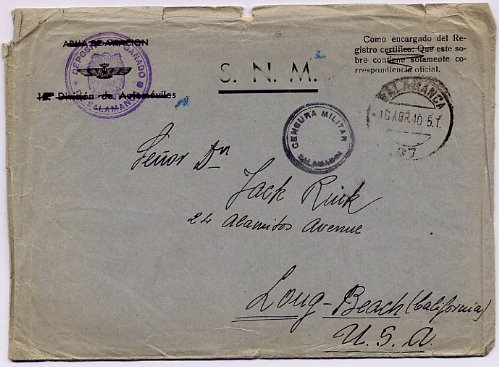 ARMA DE AVIACION
S. N. M.
Como encargado del Re-
gistro certifico: Que este so-
bre contiene solamente co-
rrespondencia oficial.
División de Automóviles
SALAMANCA
CENSURA MILITAR
SALAMANCA
SALAMANCA
10 ABR. 40 5.T
Señor Dn
Jack Rink
24 Alamitos Avenue
Long-Beach (California)
U. S. A